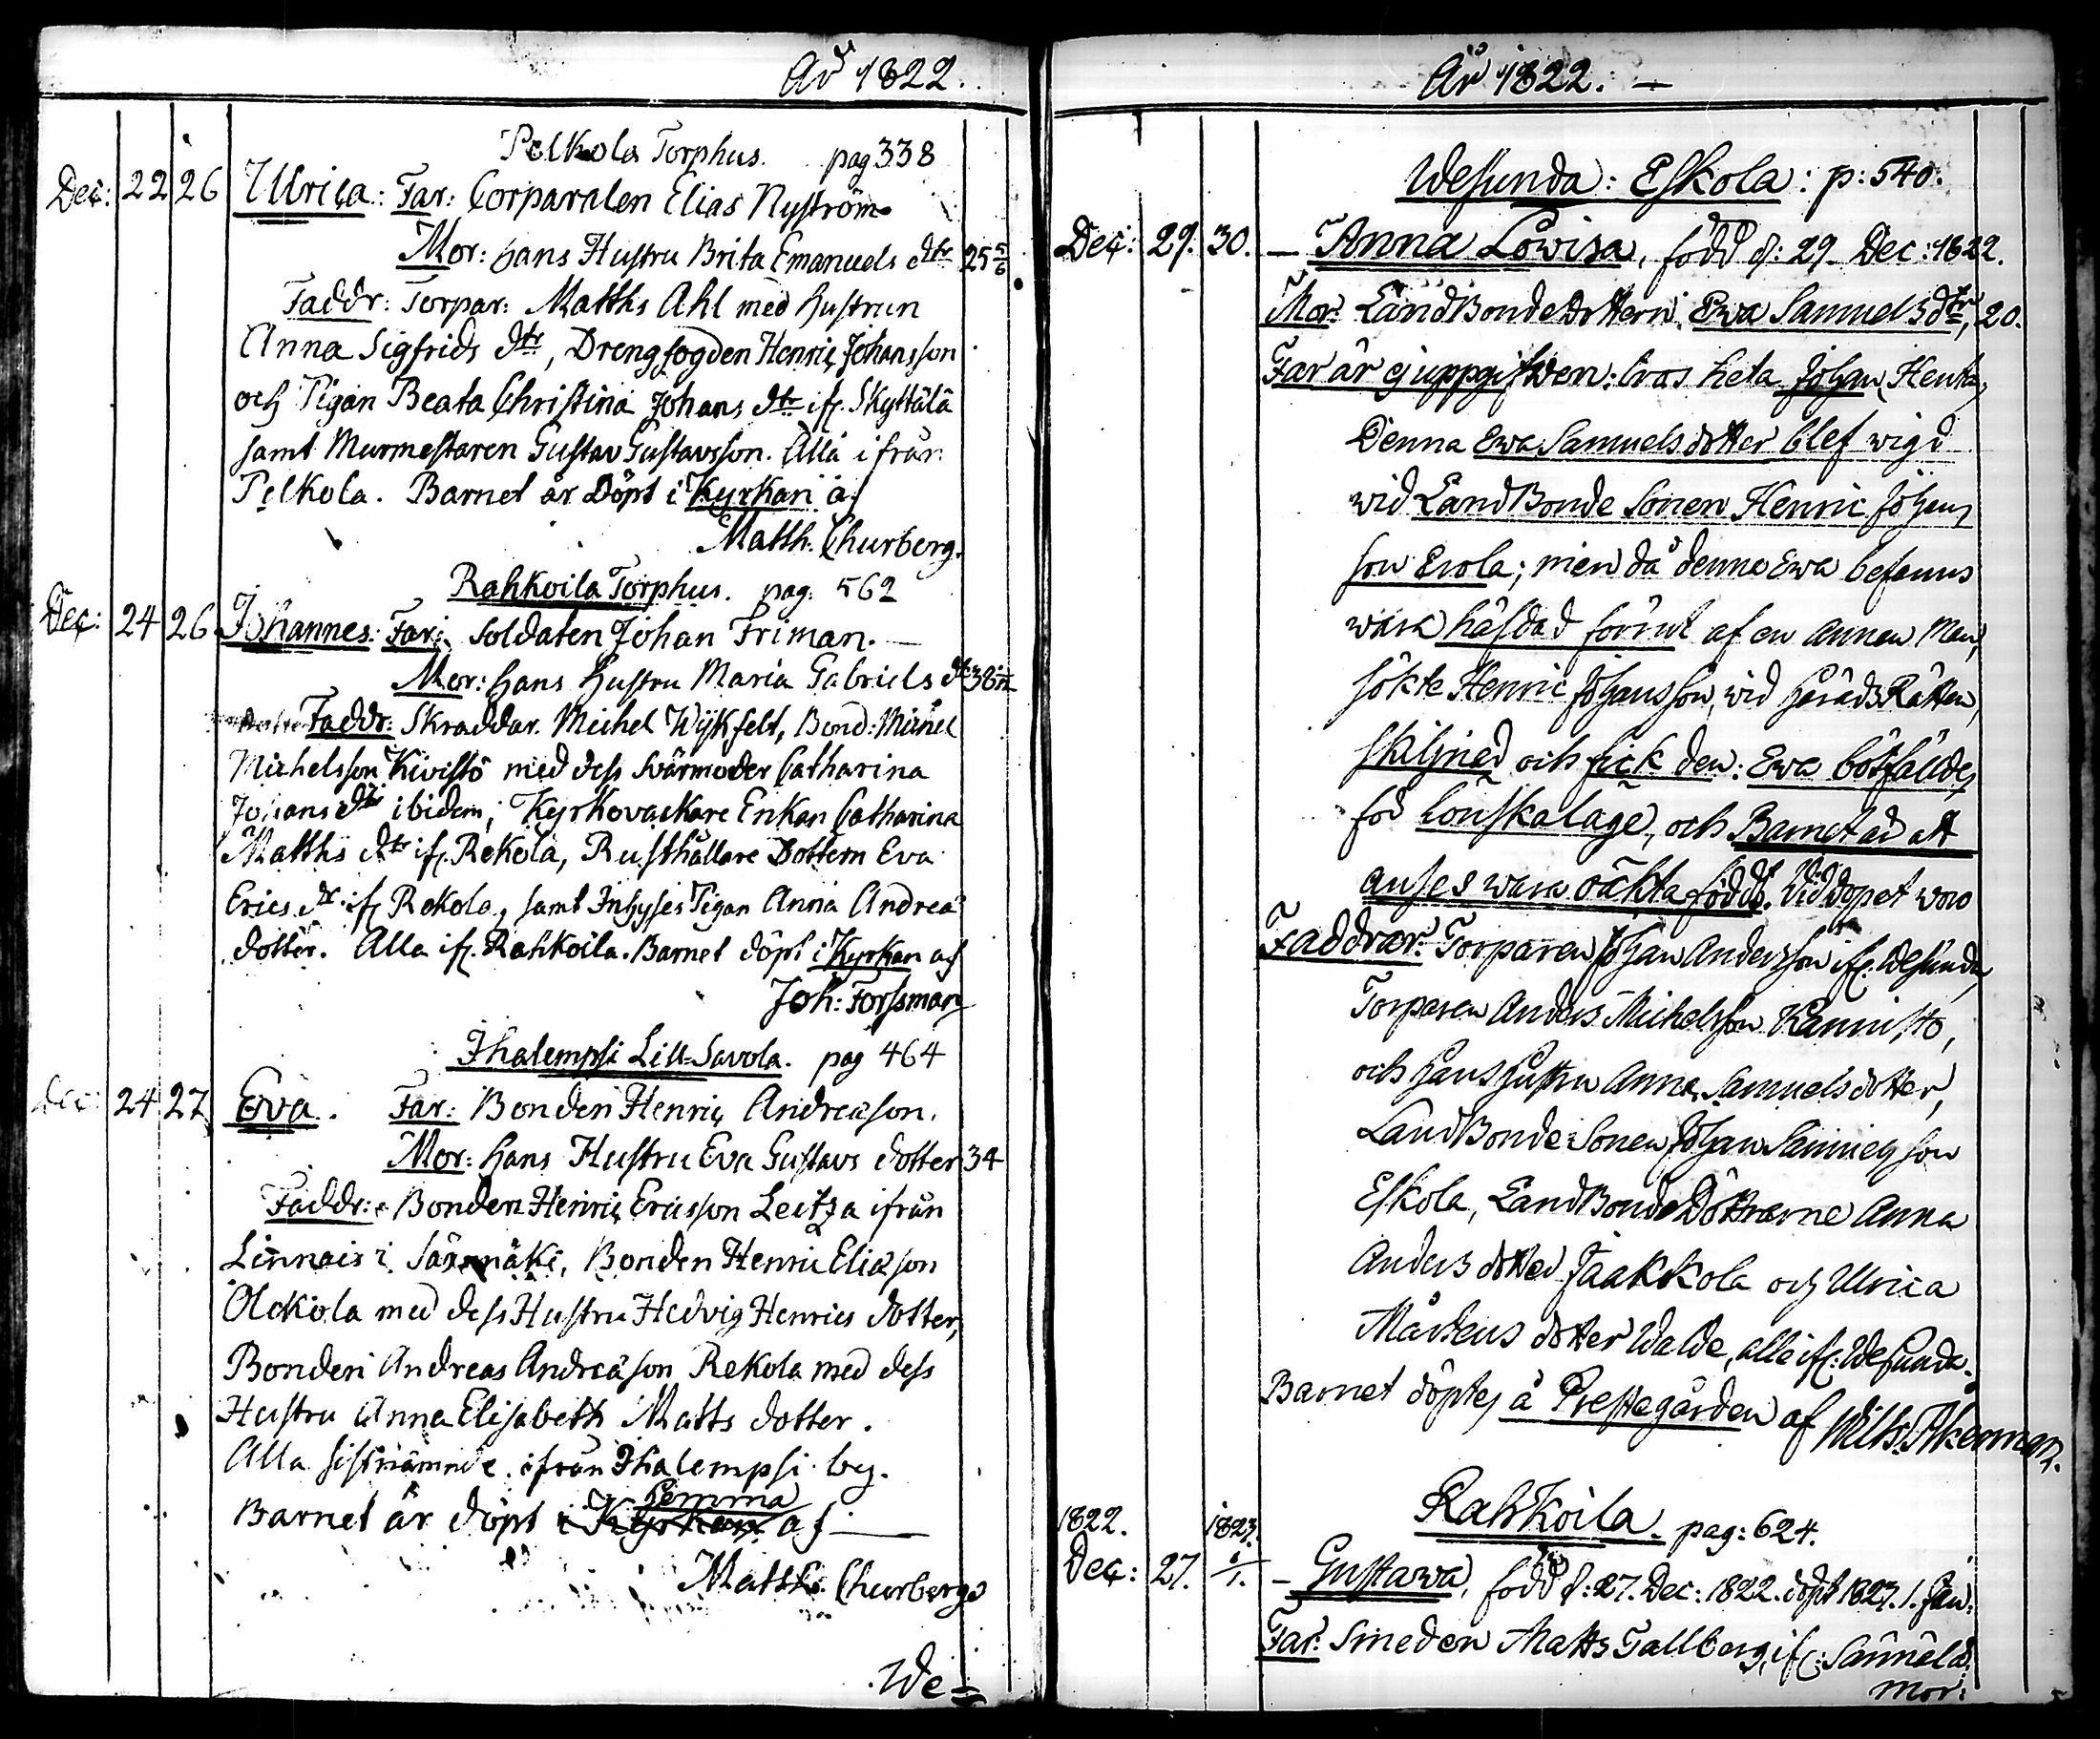 År 1822.
Pelkola Torphus. pag 338
Dec: 22 26 Ulrica: Far: Corparalen Elias Nyström
Mor: hans Hustru Brita Emanuels dtr 25 5/6
Faddr: Torpar: Matths Ahl med hustrun
Anna Sigfrids dtr, Drengfogden Henric Johansson
och Pigan Beata Christina Johans dtr ifr. Skyttälä
samt Murmestaren Gustav Gustavsson. Alla ifrån
Pelkola. Barnet är Döpt i Kyrkan af
Matth. Churberg.
Rahkoila Torphus. pag. 562
Dec: 24 26 Johannes: Far: Soldaten Johan Friman.
Mor: hans hustru Maria Gabriels dr 38
Faddr: Skraddar. Michel Wykfelt, Bond: Michel
Michelsson Kivistö med dess Svärmoder Catharina
Johans dtr ibidem; Kyrkovacktare Enkan Catharina
Matths dtr ifr. Rekola, Rusthållare Dottern Eva
Erics dr. ifr Rekola, samt Inhyses Pigan Anna Andreä
dotter. Alla ifr. Rahkoila. Barnet döpt i Kyrkan af
Joh: Forssman
Ihalempsi Lill-Savola. pag 464
Dec: 24 27 Eva. Far: Bonden Henric Andreæson.
Mor: hans Hustru Eva Gustavs dotter 34
Faddr: Bonden Henric Ericsson Leitza ifrån
Linnais i Särmäki, Bonden Henric Eliæson
Olckola med dess Hustru Hedvig Henrics dotter,
Bonden Andreas Andreæson Rekola med dess
Hustru Anna Elisabeth Matts dotter.
Alla sistnämnde ifrån Ihalempsi by.
hemma
Barnet är döpt i Kyrkan af
Matths. Churberg
We=
År 1822. —
Wesunda: Eskola: p: 540.
Dec: 29. 30. — Anna Lowisa, född d: 29 Dec: 1822.
Mor: LandBondeDottern Ewa Samuelsdtr, 20.
Far är ej uppgifwen: lräs heta Johan
Denna Ewa Samuelsdotter blef wigd
wid LandBonde Sonen Henric Johans
son Erola; men då denna Ewa befanns
wara häfdad förrut af en annan Man,
sökte Henric Johansson, wid häradsRätten,
skiljned och fick den: Ewa bötfälldes
för Lönskalage, och Barnet ad att
anses wara oächta född. Vid dopet woro
Faddrar: Torparen Johan Andersson ifr. Wesunda,
Torparen Anders Michelsson Kannisto,
och hans hustru Anna Samuelsdotter,
LandBonde-Sonen Johan Samuelsson
Eskola, LandBondeDöttrarne Anna
Andersdotter Jaakkola och Ulrica
Mårtensdotter Walde, alle ifr: Wesunda.
Barnet döptes å Prestegården af Wilh. Åkerman.
Rahkoila. pag: 624.
1822. 1823.
Dec: 27. 1/1. — Gustawa, född d: 27. Dec: 1822. döpt 1823. 1. Jan:
Far: Smeden Matts Tallberg, ifr:
Mor: